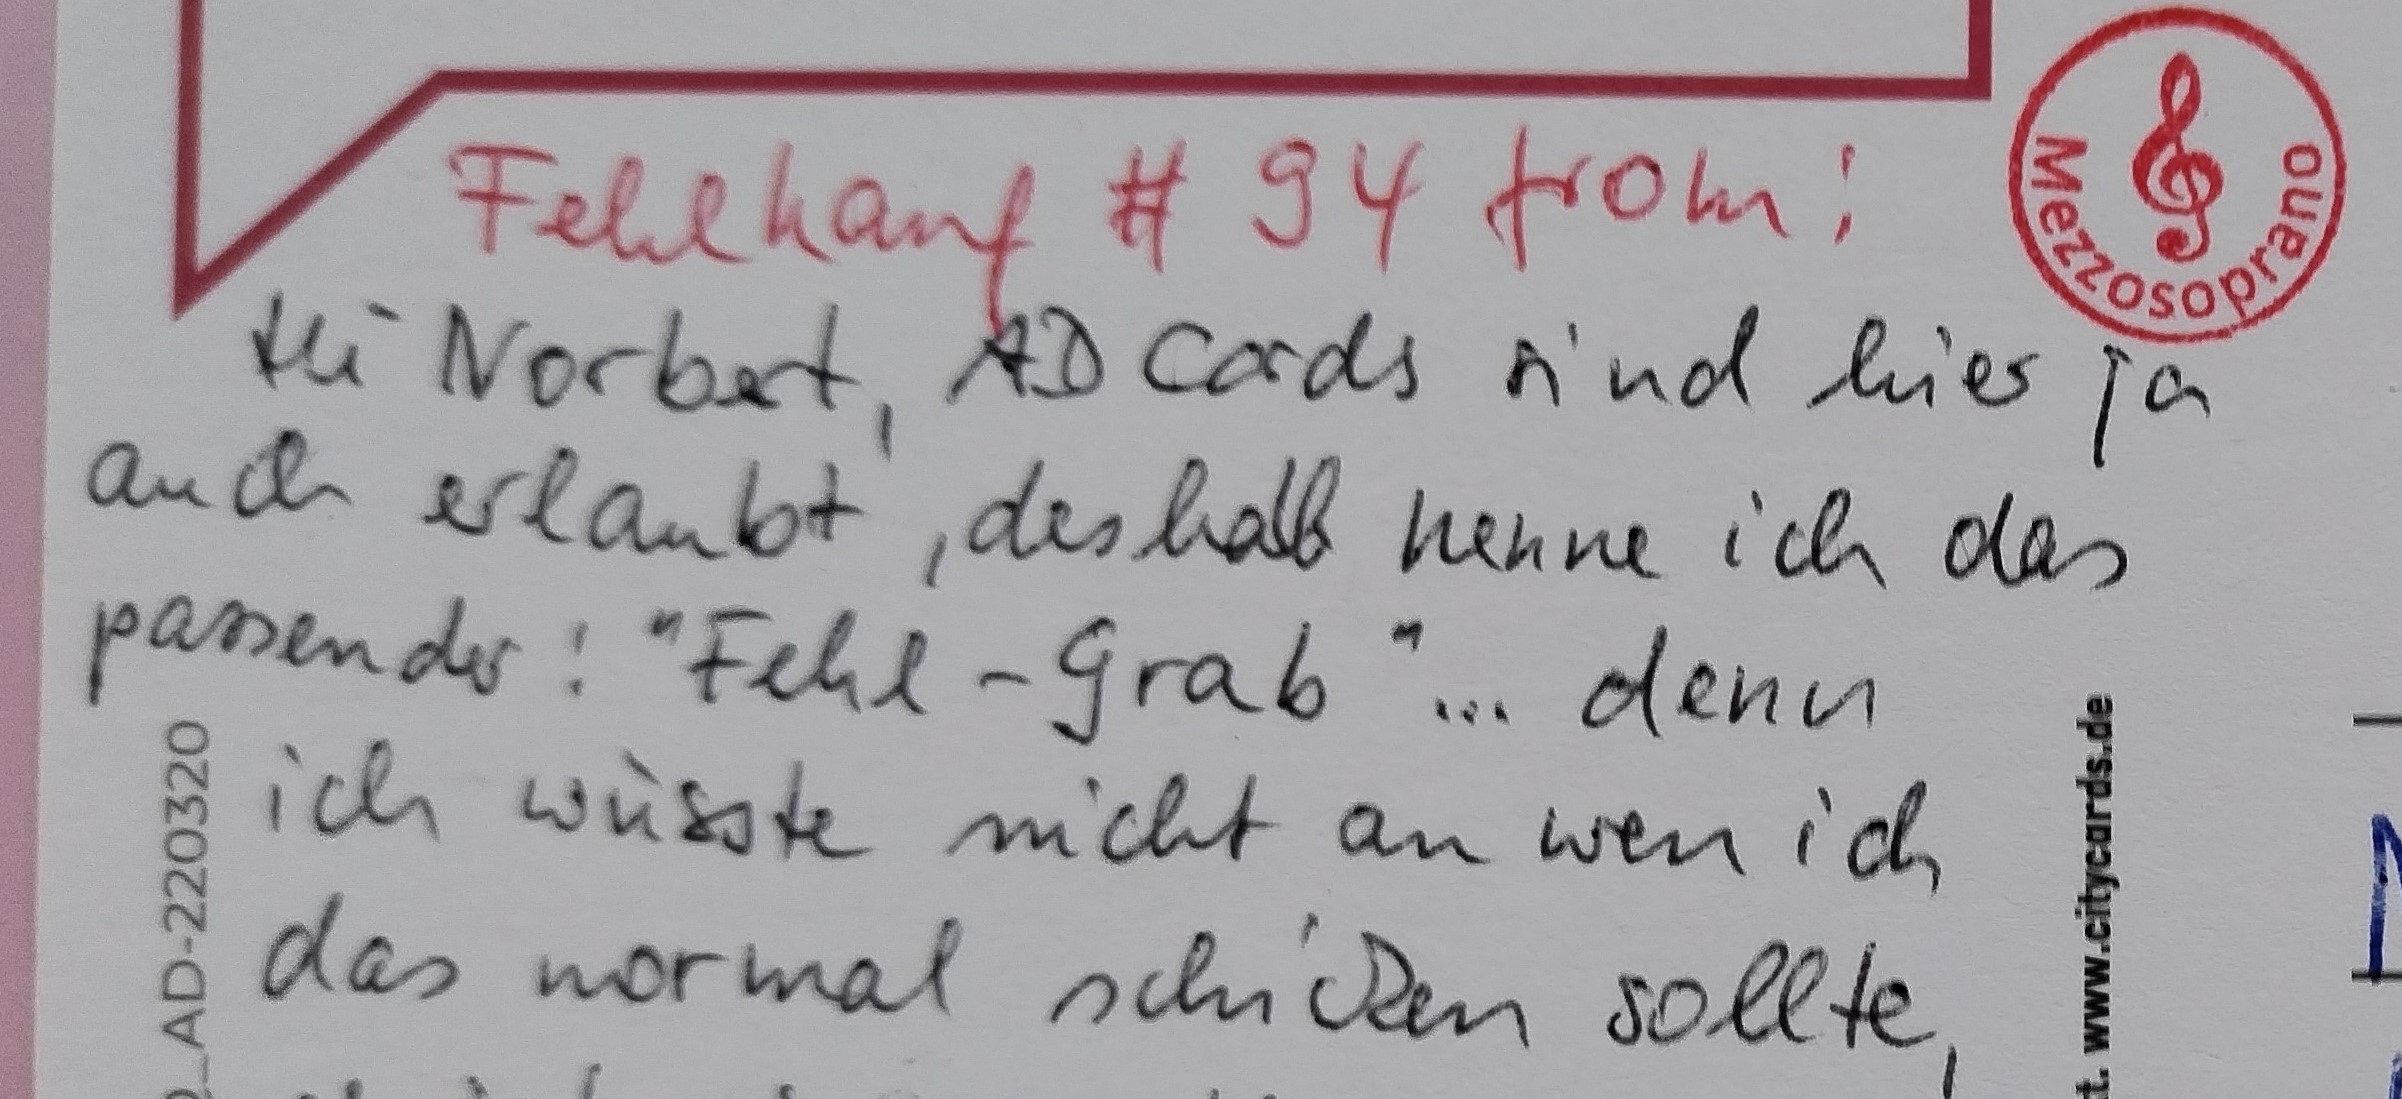 Fehlkauf # 94 from:
Mezzosoprano
Hi Norbert, AD Cards sind hier ja
auch erlaubt, deshalb nenne ich das
passender: "Fehl-Grab"... denn
ich wüsste nicht an wen ich
das normal schicken sollte,
_AD-220320
t. www.citycards.de